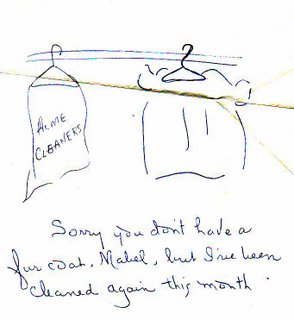 ACME
CLEANERS
Sorry you don't have a
fur coat, Mabel, but I've been
cleaned again this month.